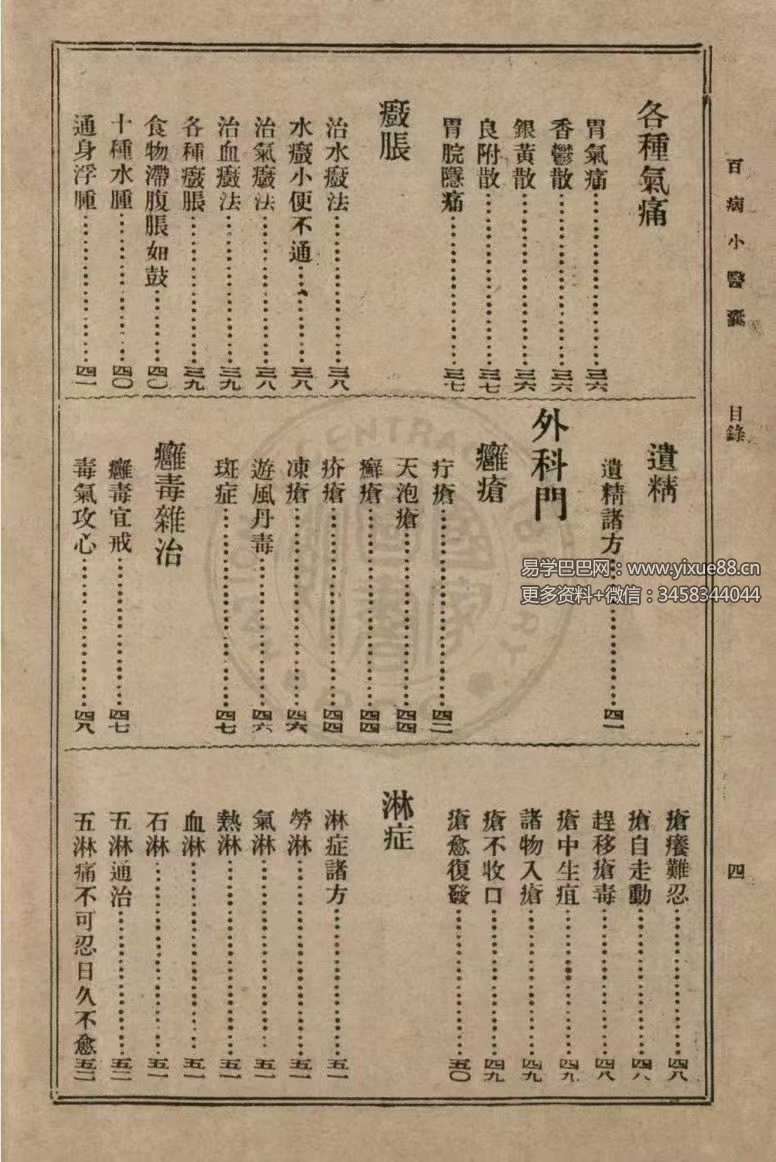 百病小醫囊 目錄 四
各種氣痛
胃氣痛……三六
香鬱散……三六
銀黃散……三六
良附散……三七
胃脘隱痛……三七
癥脹
治水癥法……三八
水癥小便不通……三八
治氣癥法……三八
治血癥法……三九
各種癥脹……三九
食物滯腹脹如鼓……四〇
十種水腫……四〇
通身浮腫……四一
遺精
遺精諸方……四一
外科門
癰瘡
疔瘡……四二
天泡瘡……四四
癬瘡……四四
疥瘡……四四
凍瘡……四六
遊風丹毒……四六
斑症……四七
癰毒雜治
癰毒宜戒……四七
毒氣攻心……四八
瘡癢難忍……四八
瘡自走動……四八
趕移瘡毒……四八
瘡中生疽……四九
諸物入瘡……四九
瘡不收口……四九
瘡愈復發……五〇
淋症
淋症諸方……五一
勞淋……五一
氣淋……五一
熱淋……五一
血淋……五一
石淋……五一
五淋通治……五二
五淋痛不可忍日久不愈 五二
易学巴巴网：www.yixue88.cn
更多资料+微信：3458344044